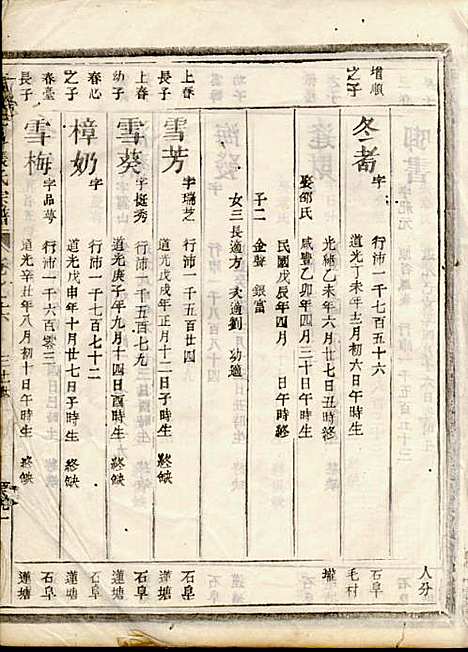 增順
之子
冬耇
字
行沛一千七百五十六
道光丁未年十二月初六日午時生
光緒乙未年六月廿七日丑時終
娶邵氏
咸豐乙卯年四月三十日午時生
民國戊辰年四月 日午時終
子二 金聲 銀富
女三長適方 大適劉 功適
上春
長子
雪芳
字瑞芝
行沛一千五百廿四
道光戊戌年正月十二日子時生 終缺
上春
幼子
雪葵
字挺秀
行沛一千五百七九
道光庚子年九月十四日酉時生 終缺
春心
之子
樟奶
字
行沛一千七百七十二
道光戊申年十月廿七日子時生 終缺
春臺
長子
雪梅
字品萼
行沛一千六百零三
道光辛丑年八月初十日午時生 終缺
人分
石阜
毛村
壠
石阜
蓮塘
石阜
蓮塘
石阜
蓮塘
石阜
蓮塘
氏宗譜